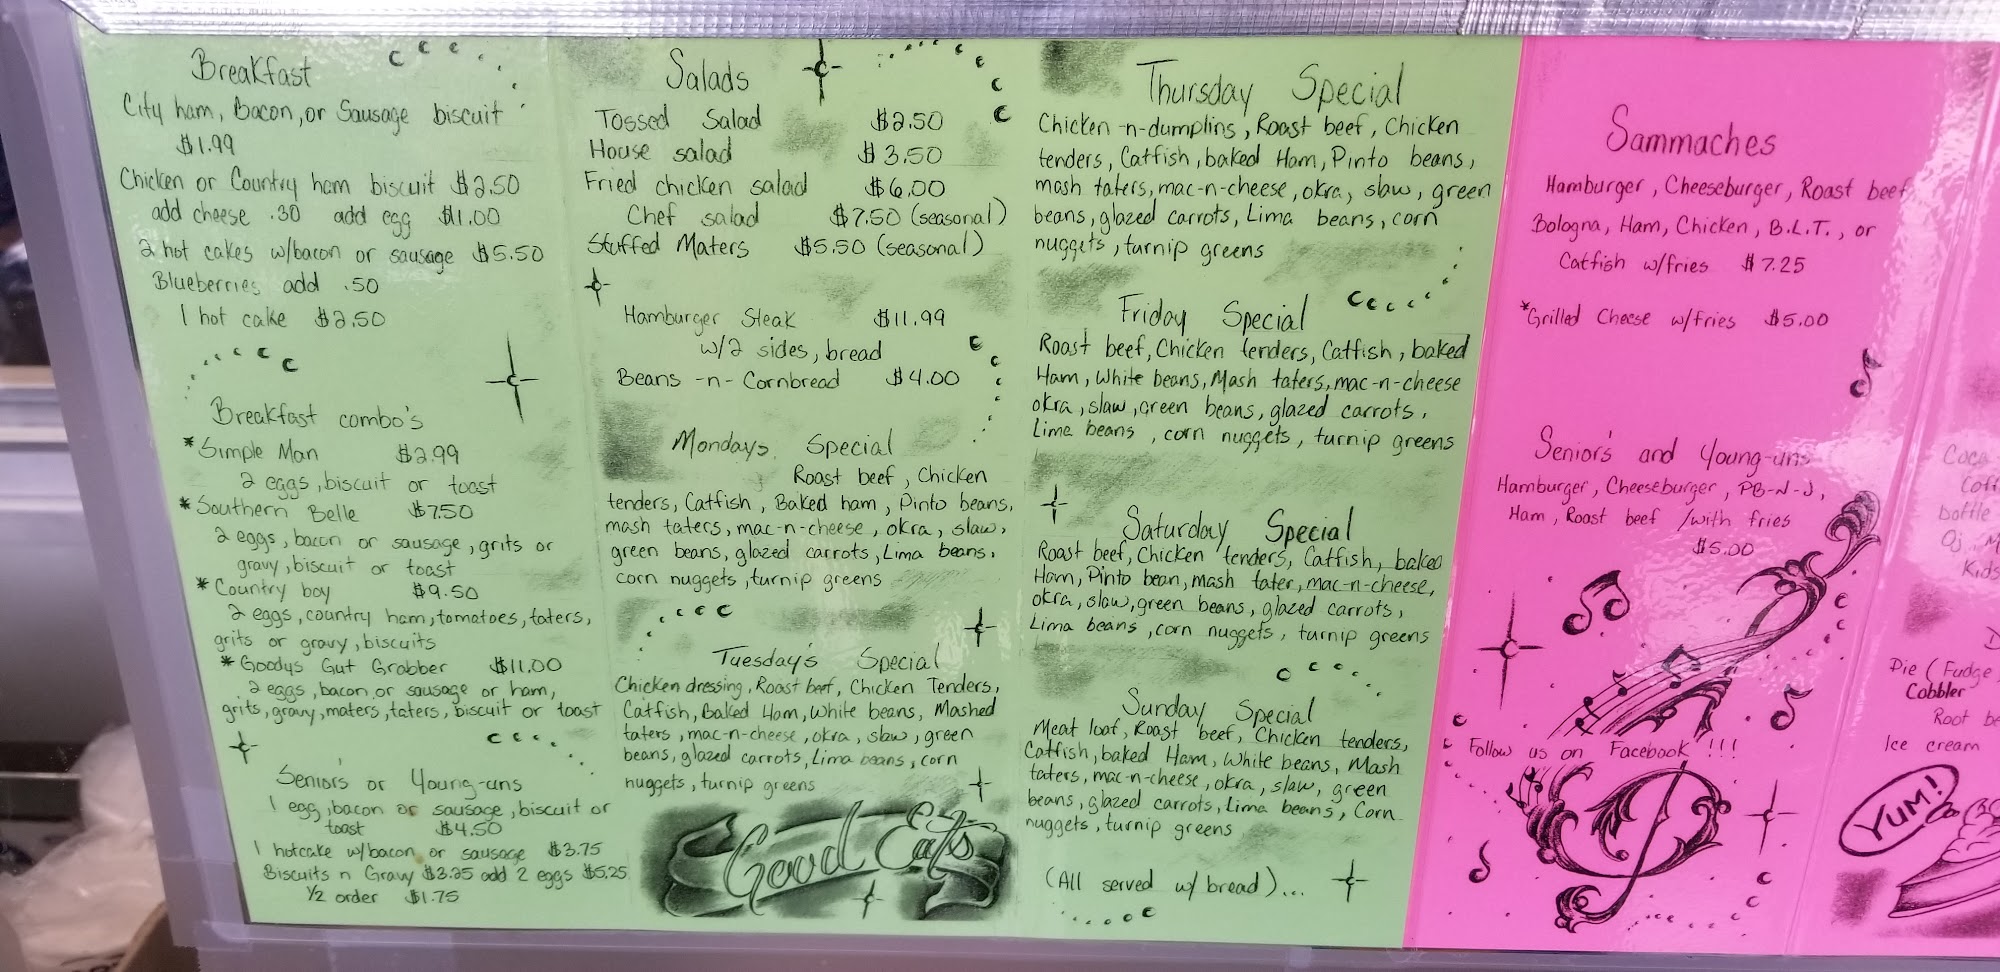 Breakfast
City ham, Bacon, or Sausage biscuit
$1.99
Chicken or Country ham biscuit $2.50
add cheese .30 add egg $1.00
2 hot cakes w/bacon or sausage $5.50
Blueberries add .50
1 hot cake $2.50
Breakfast combo's
*Simple Man $2.99
2 eggs, biscuit or toast
*Southern Belle $7.50
2 eggs, bacon or sausage, grits or
gravy, biscuit or toast
*Country boy $9.50
2 eggs, country ham, tomatoes, taters,
grits or gravy, biscuits
*Goodys Gut Grabber $11.00
2 eggs, bacon or sausage or ham,
grits, gravy, maters, taters, biscuit or toast
Seniors or Young-uns
1 egg, bacon or sausage, biscuit or
toast $4.50
1 hotcake w/bacon or sausage $3.75
Biscuits n Gravy $3.25 add 2 eggs $5.25
1/2 order $1.75
Salads
Tossed Salad $2.50
House salad $3.50
Fried chicken salad $6.00
Chef salad $7.50 (seasonal)
Stuffed Maters $5.50 (seasonal)
Hamburger Steak $11.99
w/2 sides, bread
Beans -n- Cornbread $4.00
Mondays Special
Roast beef, Chicken
tenders, Catfish, Baked ham, Pinto beans,
mash taters, mac-n-cheese, okra, slaw,
green beans, glazed carrots, Lima beans,
corn nuggets, turnip greens
Tuesday's Special
Chicken dressing, Roast beef, Chicken Tenders,
Catfish, Baked Ham, White beans, Mashed
taters, mac-n-cheese, okra, slaw, green
beans, glazed carrots, Lima beans, corn
nuggets, turnip greens
Good Eats
Thursday Special
Chicken-n-dumplins, Roast beef, Chicken
tenders, Catfish, baked Ham, Pinto beans,
mash taters, mac-n-cheese, okra, slaw, green
beans, glazed carrots, Lima beans, corn
nuggets, turnip greens
Friday Special
Roast beef, Chicken tenders, Catfish, baked
Ham, White beans, Mash taters, mac-n-cheese
okra, slaw, green beans, glazed carrots,
Lima beans, corn nuggets, turnip greens
Saturday Special
Roast beef, Chicken tenders, Catfish, baked
Ham, Pinto bean, mash tater, mac-n-cheese,
okra, slaw, green beans, glazed carrots,
Lima beans, corn nuggets, turnip greens
Sunday Special
Meat loaf, Roast beef, Chicken tenders,
Catfish, baked Ham, White beans, Mash
taters, mac-n-cheese, okra, slaw, green
beans, glazed carrots, Lima beans, Corn
nuggets, turnip greens
(All served w/ bread)...
Sammaches
Hamburger, Cheeseburger, Roast beef
Bologna, Ham, Chicken, B.L.T., or
Catfish w/fries $7.25
*Grilled Cheese w/fries $5.00
Senior's and Young-uns
Hamburger, Cheeseburger, PB-N-J,
Ham, Roast beef /with fries
$5.00
Follow us on Facebook!!!
Coca
bottle
Oj,
Kids
Pie (Fudge,
Cobbler
Root
Ice cream
YUM!